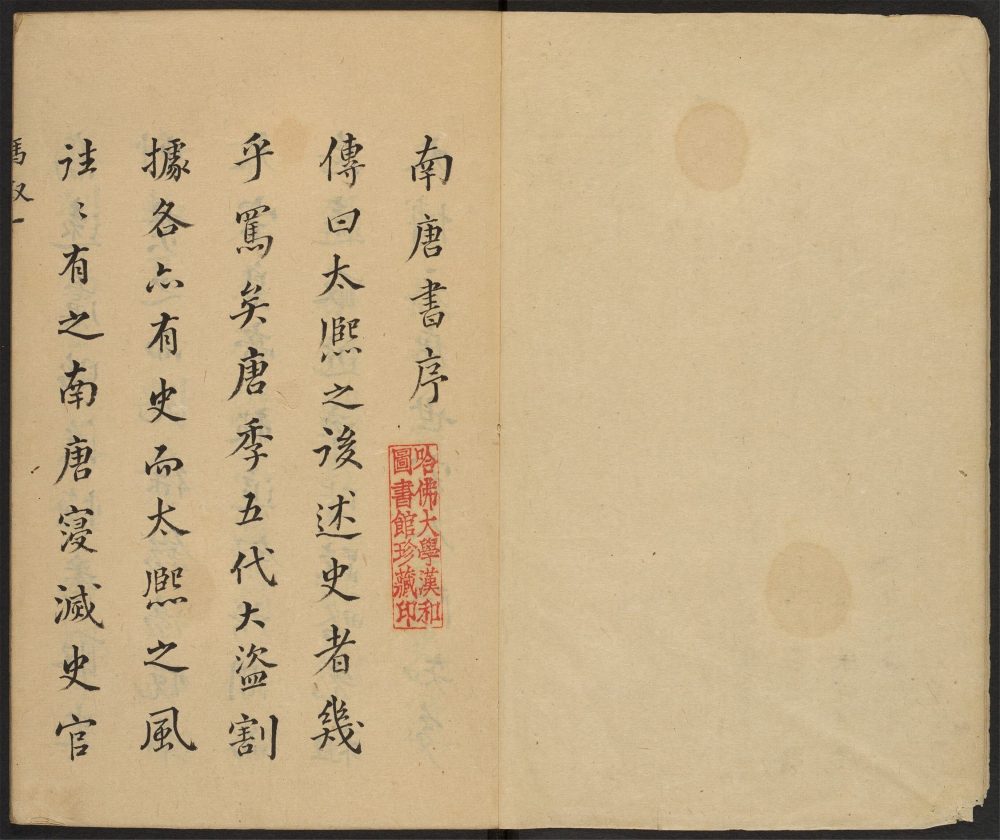 南唐書序
傳曰太熙之後述史者幾
乎罵矣唐季五代大盜割
據各亦有史而太熙之風
往〻有之南唐寖滅史官
馬序一
哈佛大學漢和
圖書館珍藏印